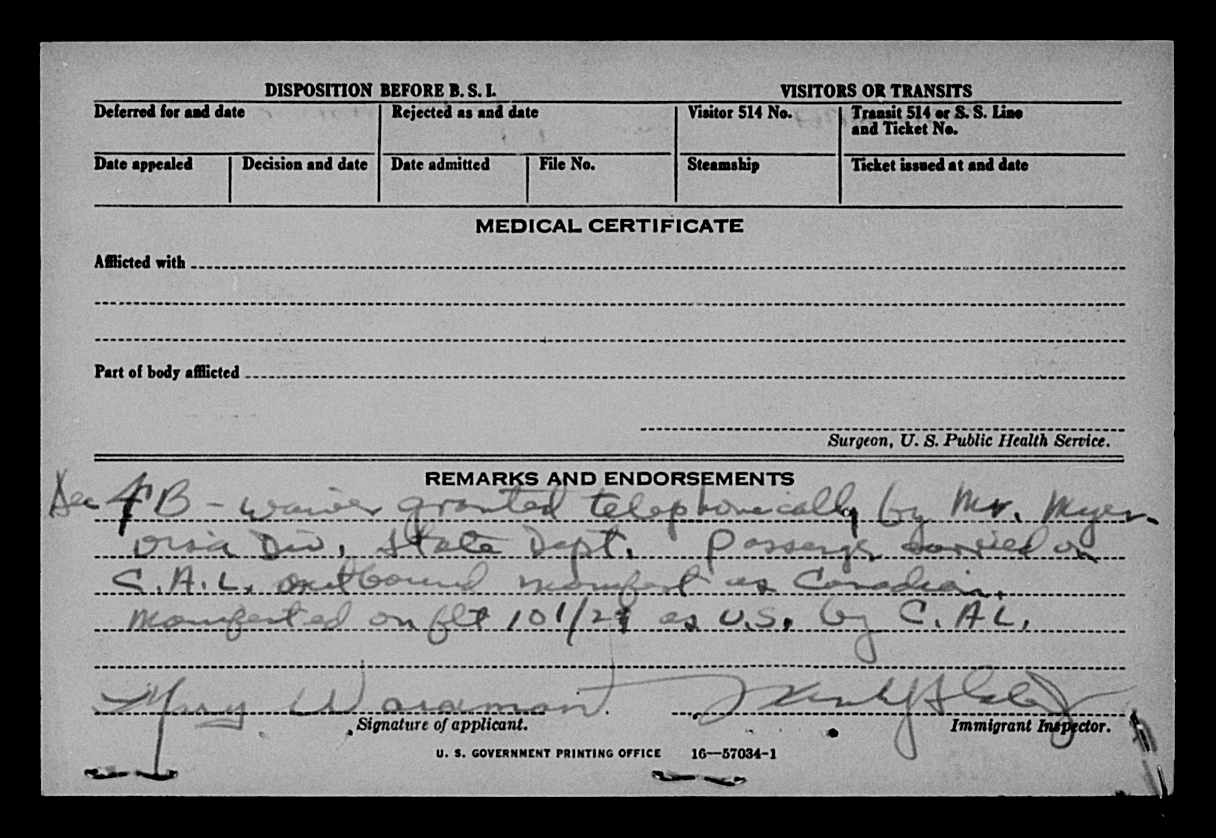 DISPOSITION BEFORE B. S. I. VISITORS OR TRANSITS
Deferred for and date Rejected as and date Visitor 514 No. Transit 514 or S. S. Line
and Ticket No.
Date appealed Decision and date Date admitted File No. Steamship Ticket issued at and date
MEDICAL CERTIFICATE
Afflicted with
Part of body afflicted
Surgeon, U. S. Public Health Service.
REMARKS AND ENDORSEMENTS
4 B - waiver granted telephonically by Mr. Myer.
Visa Div. State Dept. carried on
C.A.L. outbound manifest as Canadian.
Manifested on flt 101/ as U.S. by C.A.L.
Mary Wardman
Signature of applicant. Immigrant Inspector.
U. S. GOVERNMENT PRINTING OFFICE 16—57034-1